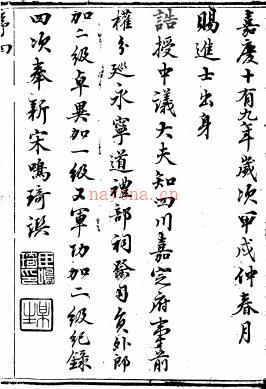 嘉慶十有九年歲次甲戌仲春月
賜進士出身
誥授中議大夫知四川嘉定府事前
權分巡永寧道禮部祠祭司員外郎
加二級卓異加一級又軍功加二級紀錄
四次奉新宋鳴琦譔
序四
nayona.cn